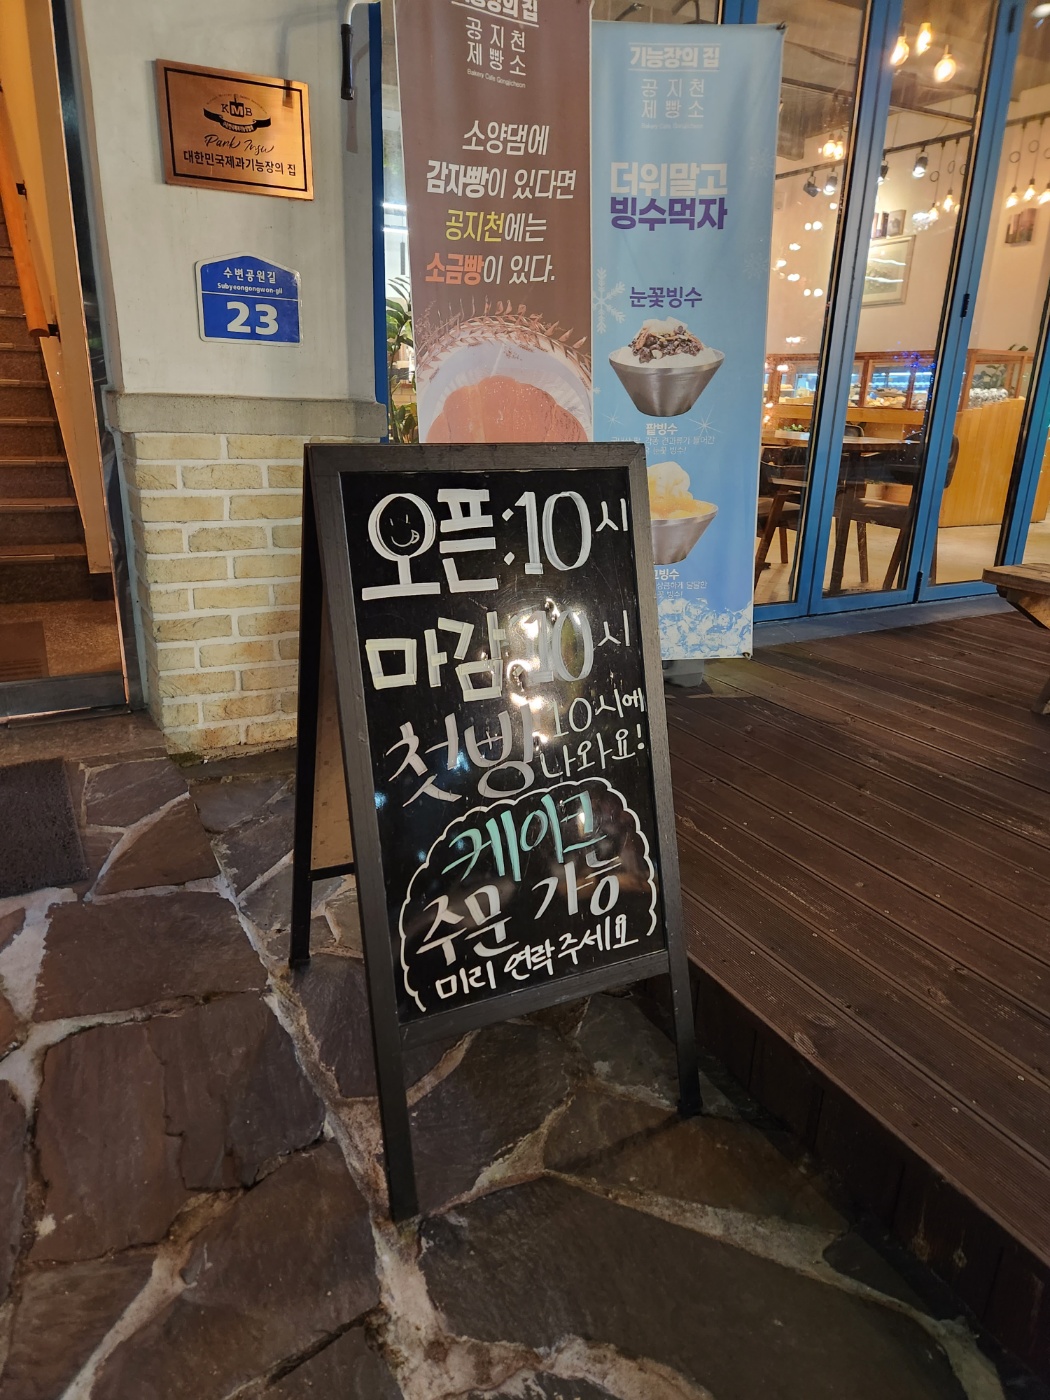 KMB
대한민국제과기능장의 집
수변공원길
Subyeongongwon-gil
23
공지천
제빵소
Bakery Cafe Gongjicheon
소양댐에
감자빵이 있다면
공지천에는
소금빵이 있다.
기능장의 집
공지천
제빵소
더위말고
빙수먹자
눈꽃빙수
팥빙수
오픈:10시
마감:10시
첫빵 10시에
나와요!
케이크
주문 가능
미리 연락주세요